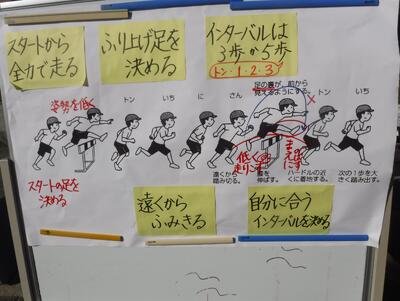 スタートから
全力で走る
ふり上げ足を
決める
インターバルは
3歩か5歩
トン・1・2・3
足の裏が、前から
見えるようにする。
姿勢を低く
トン
いち
に
さん
トン
いち
スタートの足を
決める
遠くから
踏み切る。
低く
まえに
腰を
伸ばす。
ハードルの近
くに着地する。
次の1歩を大
きく踏み出す。
遠くから
ふみきる
自分に合う
インターバルを決める